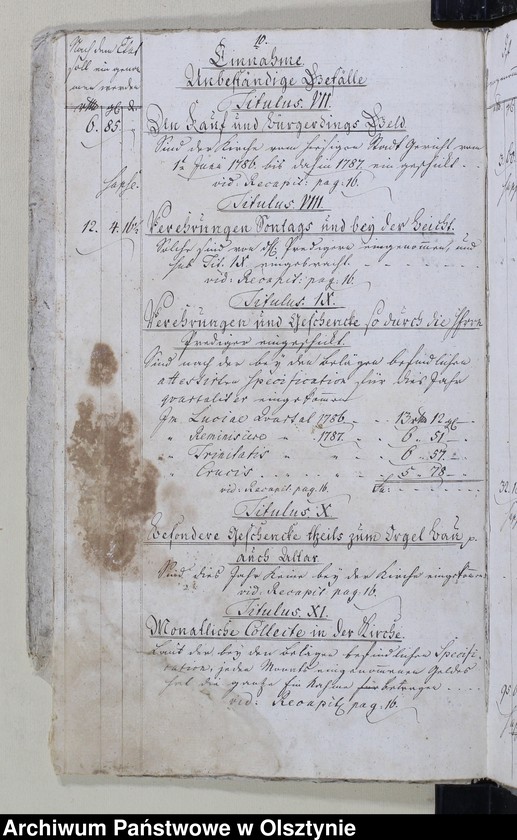 10.
Nach dem Etat
soll ein genom
men werden
Einnahme
Unbeständige Gefälle
Titulus. VII.
6. 85.
Den Kauf und Bürgerdings Geld.
Sind der Kirche vom hiesigen Stadt Gericht vom
1t Junii 1786 bis dahin 1787. ein geschickt
vid. Recapit: pag. 16.
Titulus. VIII.
12. 4. 16
Verehrungen Sontags und bey der Beicht.
Solche sind von Predigern eingenommen, und
sub Tit. IX eingebracht.
vid: Recapit: pag. 16.
Titulus. IX.
Verehrungen und Geschencke so durch die Herrn
Prediger eingeschickt.
Sind nach der bey den Belägen befindlichen
attestirten Specification für dies Jahr
quartaliter eingekommen
In Luciae Quartal 1786. 13 rtl 12 gl
" Reminiscere " 1787. 6 - 51 -
" Trinitatis " 6 - 57. -
" Crucis 5 - 78 -
vid: Recapit pag. 16.
Titulus. X.
Besondere Geschencke theils zum Orgel Bau
auch Altar
Sind dies Jahr keine bey der Kirche eingekommen
vid. Recapit pag. 16.
Titulus. XI.
Monathliche Collecte in der Kirche.
Laut der bey den Belägen befindlichen Specifi-
cation, jeden Monats eingenommenen Geldes
hat die gantze Ein Nahme betragen
vid: Recapit pag. 16.
Archiwum Państwowe w Olsztynie